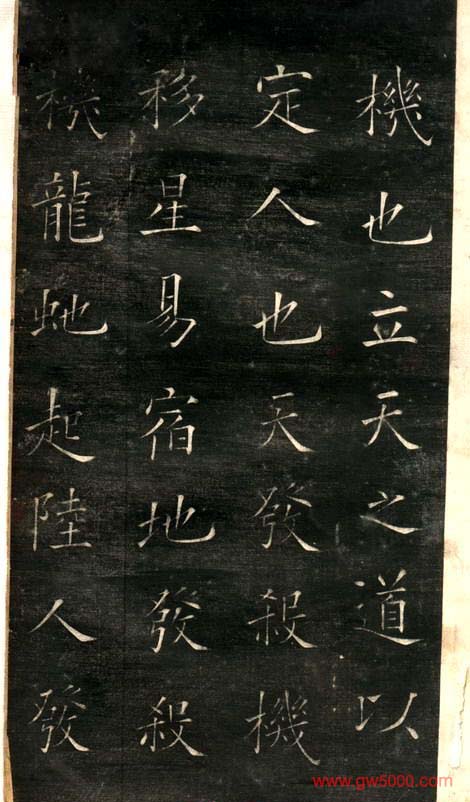 機也立天之道以
定人也天發殺機
移星易宿地發殺
機龍虵起陸人發
www.gw5000.com